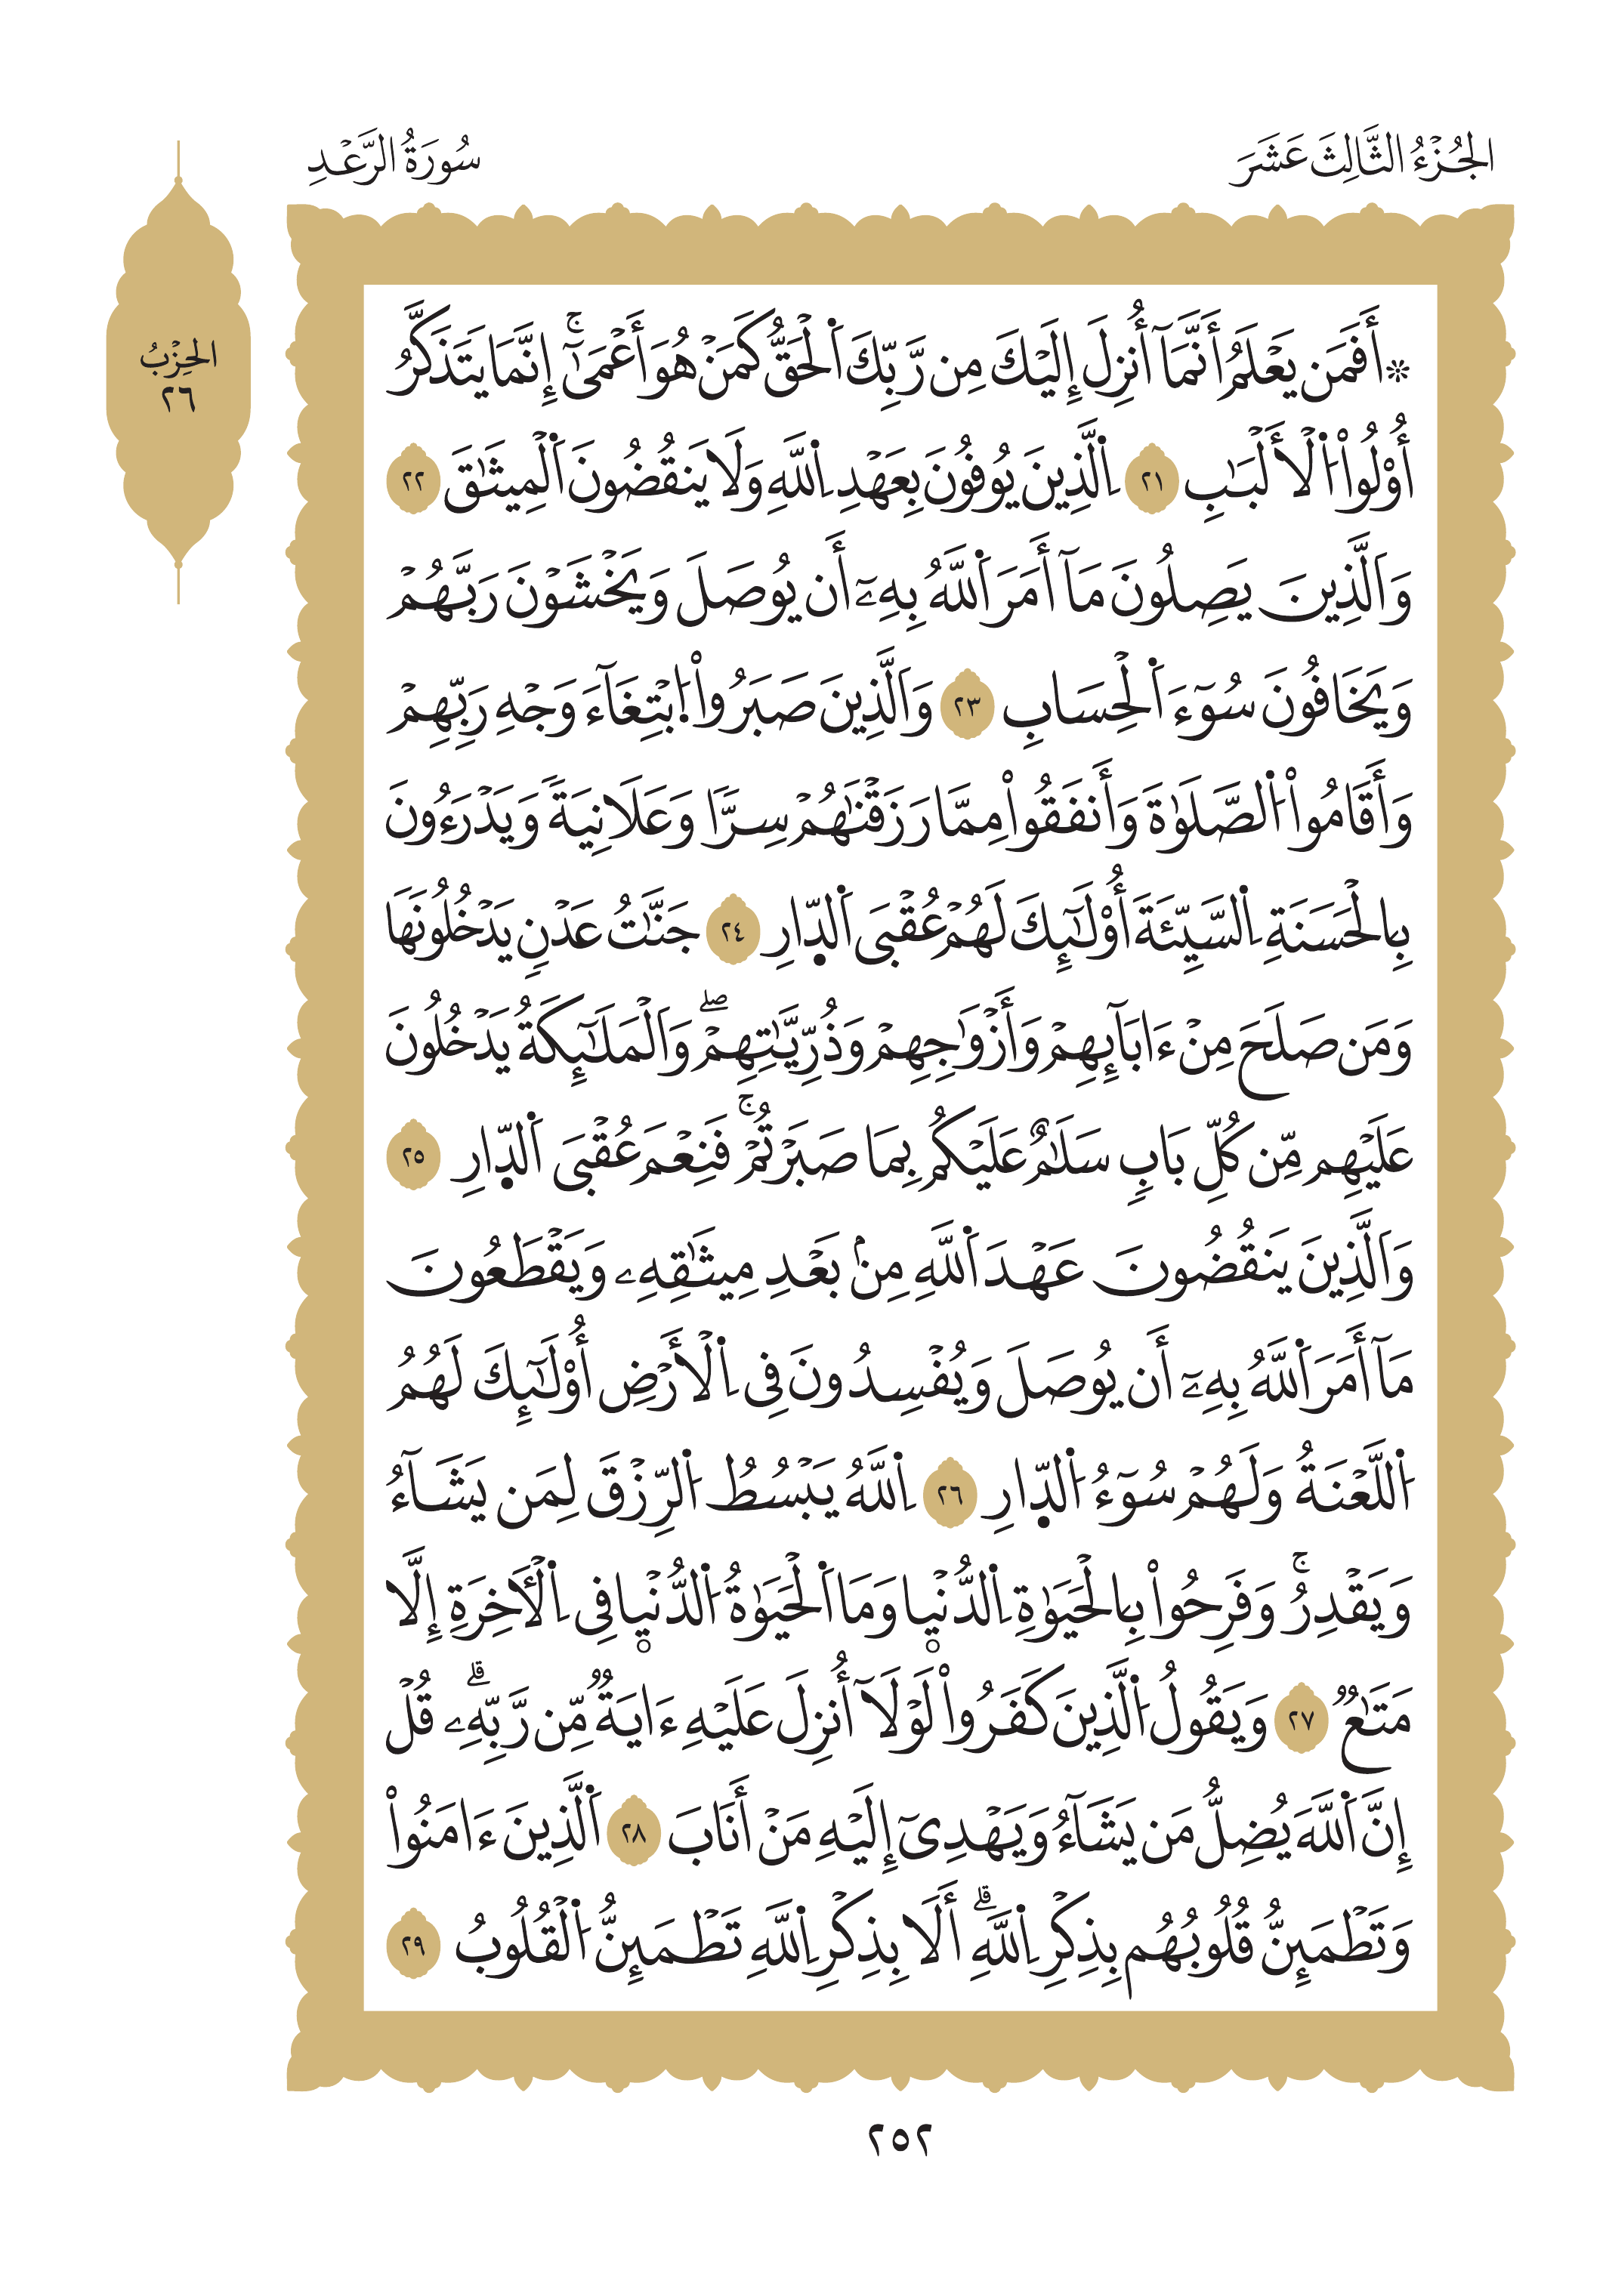 الجُزْءُ الثَّالِثَ عَشَرَ
سُورَةُ الرَّعْدِ
الحِزْبُ
٢٦
۞أَفَمَن يَعْلَمُ أَنَّمَآ أُنزِلَ إِلَيْكَ مِن رَّبِّكَ اَ۬لْحَقُّ كَمَنْ هُوَ أَعْمَىٰٓۚ إِنَّمَا يَتَذَكَّرُ
أُوْلُواْ اُ۬لْأَلْبَٰبِ ٢١ اِ۬لَّذِينَ يُوفُونَ بِعَهْدِ اِ۬للَّهِ وَلَا يَنقُضُونَ اَ۬لْمِيثَٰقَ ٢٢
وَاَلَّذِينَ يَصِلُونَ مَآ أَمَرَ اَ۬للَّهُ بِهِۦٓ أَن يُوصَلَ وَيَخْشَوْنَ رَبَّهُمْ
وَيَخَافُونَ سُوٓءَ اَ۬لْحِسَابِ ٢٣ وَاَلَّذِينَ صَبَرُواْ اُ۪بْتِغَآءَ وَجْهِ رَبِّهِمْ
وَأَقَامُواْ اُ۬لصَّلَوٰةَ وَأَنفَقُواْ مِمَّا رَزَقْنَٰهُمْ سِرّٗا وَعَلَانِيَةٗ وَيَدْرَءُونَ
بِالْحَسَنَةِ اِ۬لسَّيِّئَةَ أُوْلَٰٓئِكَ لَهُمْ عُقْبَى اَ۬لدّ۪ارِ ٢٤ جَنَّٰتُ عَدْنٖ يَدْخُلُونَهَا
وَمَن صَلَحَ مِنْ ءَابَآئِهِمْ وَأَزْوَٰجِهِمْ وَذُرِّيَّٰتِهِمْۖ وَاَلْمَلَٰٓئِكَةُ يَدْخُلُونَ
عَلَيْهِم مِّن كُلِّ بَابٖ سَلَٰمٌ عَلَيْكُم بِمَا صَبَرْتُمْۚ فَنِعْمَ عُقْبَى اَ۬لدّ۪ارِ ٢٥
وَاَلَّذِينَ يَنقُضُونَ عَهْدَ اَ۬للَّهِ مِنۢ بَعْدِ مِيثَٰقِهِۦ وَيَقْطَعُونَ
مَآ أَمَرَ اَ۬للَّهُ بِهِۦٓ أَن يُوصَلَ وَيُفْسِدُونَ فِى اِ۬لْأَرْضِ أُوْلَٰٓئِكَ لَهُمُ
اُ۬للَّعْنَةُ وَلَهُمْ سُوٓءُ اُ۬لدّ۪ارِ ٢٦ اِ۬للَّهُ يَبْسُطُ اُ۬لرِّزْقَ لِمَن يَشَآءُ
وَيَقْدِرُۚ وَفَرِحُواْ بِالْحَيَوٰةِ اِ۬لدُّنْيا وَمَا اَ۬لْحَيَوٰةُ اُ۬لدُّنْيا فِى اِ۬لْأٓخِرَةِ إِلَّا
مَتَٰعٞ ٢٧ وَيَقُولُ اُ۬لَّذِينَ كَفَرُواْ لَوْلَآ أُنزِلَ عَلَيْهِ ءَايَةٞ مِّن رَّبِّهِۦۗ قُلْ
إِنَّ اَ۬للَّهَ يُضِلُّ مَن يَشَآءُ وَيَهْدِىٓ إِلَيْهِ مَنْ أَنَابَ ٢٨ اَ۬لَّذِينَ ءَامَنُواْ
وَتَطْمَئِنُّ قُلُوبُهُم بِذِكْرِ اِ۬للَّهِۗ أَلَا بِذِكْرِ اِ۬للَّهِ تَطْمَئِنُّ اُ۬لْقُلُوبُ ٢٩
٢٥٢